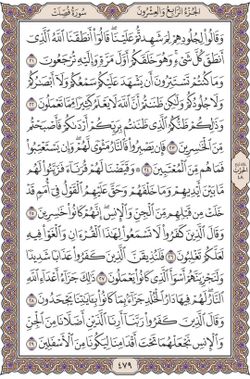 سُورَةُ فُصِّلَتْ
الجُزْءُ الرَّابِعُ وَالعِشْرُونَ
وَقَالُوا۟ لِجُلُودِهِمْ لِمَ شَهِدتُّمْ عَلَيْنَا قَالُوٓا۟ أَنطَقَنَا ٱللَّهُ ٱلَّذِىٓ
أَنطَقَ كُلَّ شَىْءٍ وَهُوَ خَلَقَكُمْ أَوَّلَ مَرَّةٍ وَإِلَيْهِ تُرْجَعُونَ ٢١
وَمَا كُنتُمْ تَسْتَتِرُونَ أَن يَشْهَدَ عَلَيْكُمْ سَمْعُكُمْ وَلَآ أَبْصَٰرُكُمْ
وَلَا جُلُودُكُمْ وَلَٰكِن ظَنَنتُمْ أَنَّ ٱللَّهَ لَا يَعْلَمُ كَثِيرًا مِّمَّا تَعْمَلُونَ ٢٢
وَذَٰلِكُمْ ظَنُّكُمُ ٱلَّذِى ظَنَنتُم بِرَبِّكُمْ أَرْدَىٰكُمْ فَأَصْبَحْتُم
مِّنَ ٱلْخَٰسِرِينَ ٢٣ فَإِن يَصْبِرُوا۟ فَٱلنَّارُ مَثْوًى لَّهُمْ وَإِن يَسْتَعْتِبُوا۟
فَمَا هُم مِّنَ ٱلْمُعْتَبِينَ ٢٤ وَقَيَّضْنَا لَهُمْ قُرَنَآءَ فَزَيَّنُوا۟ لَهُم
مَّا بَيْنَ أَيْدِيهِمْ وَمَا خَلْفَهُمْ وَحَقَّ عَلَيْهِمُ ٱلْقَوْلُ فِىٓ أُمَمٍ قَدْ
خَلَتْ مِن قَبْلِهِم مِّنَ ٱلْجِنِّ وَٱلْإِنسِ إِنَّهُمْ كَانُوا۟ خَٰسِرِينَ ٢٥
وَقَالَ ٱلَّذِينَ كَفَرُوا۟ لَا تَسْمَعُوا۟ لِهَٰذَا ٱلْقُرْءَانِ وَٱلْغَوْا۟ فِيهِ
لَعَلَّكُمْ تَغْلِبُونَ ٢٦ فَلَنُذِيقَنَّ ٱلَّذِينَ كَفَرُوا۟ عَذَابًا شَدِيدًا
وَلَنَجْزِيَنَّهُمْ أَسْوَأَ ٱلَّذِى كَانُوا۟ يَعْمَلُونَ ٢٧ ذَٰلِكَ جَزَآءُ أَعْدَآءِ ٱللَّهِ
ٱلنَّارُ لَهُمْ فِيهَا دَارُ ٱلْخُلْدِ جَزَآءًۢ بِمَا كَانُوا۟ بِـَٔايَٰتِنَا يَجْحَدُونَ ٢٨
وَقَالَ ٱلَّذِينَ كَفَرُوا۟ رَبَّنَآ أَرِنَا ٱلَّذَيْنِ أَضَلَّانَا مِنَ ٱلْجِنِّ
وَٱلْإِنسِ نَجْعَلْهُمَا تَحْتَ أَقْدَامِنَا لِيَكُونَا مِنَ ٱلْأَسْفَلِينَ ٢٩
٤٧٩